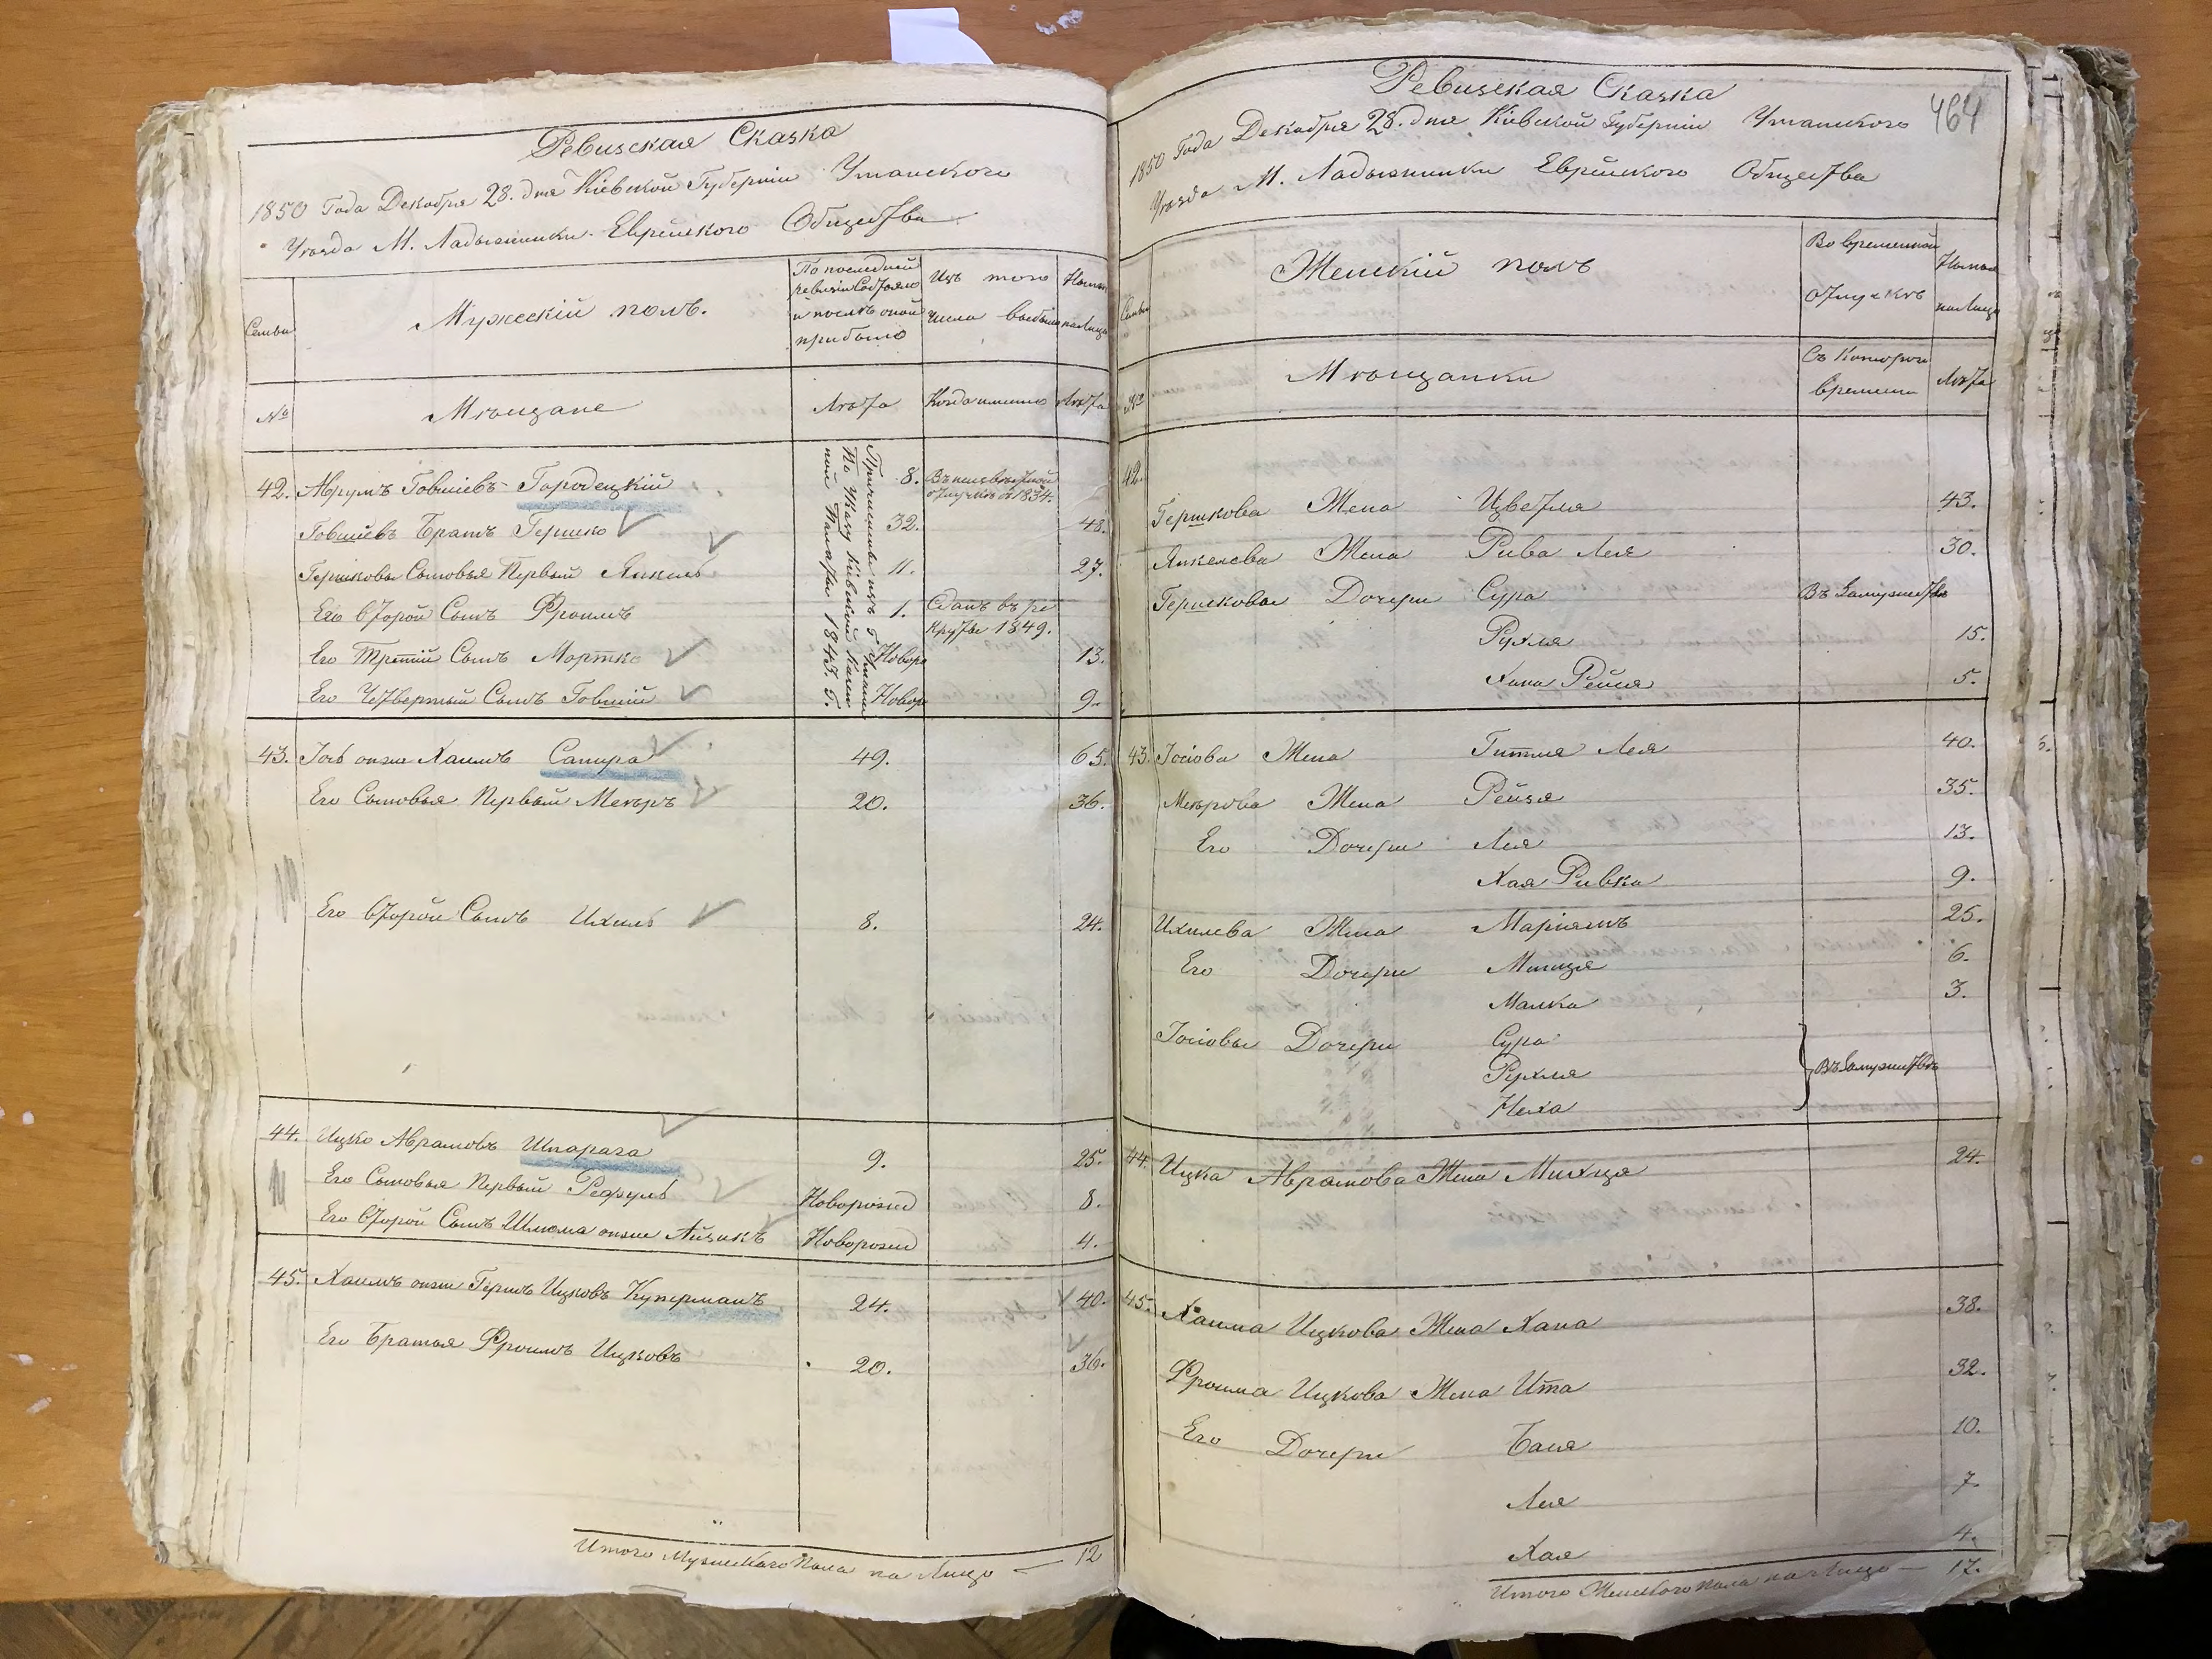 Ревизская Сказка
1850 Года Декабря 28. дня Кіевской Губерніи Уманского
Уезда М. Ладыжинки Еврейского Общества
Семьи
Мужескій полъ.
По последней
ревизіи Состояло
и после оной
прибыло
Изъ того
числа выбыло
Ныне
на лицо
№
Мѣщане
Лѣта
Когда именно
Лѣта
Причислены изъ г. Умани
По Указу Кіевской Казен
ной Палаты 1843. Г.
42. Аврумъ Говшіевъ Городецкій 8. Въ неизвестной
отлучке с 1834.
Говшіевъ Братъ Гершко 32. 48.
Гершковы Сыновья Первый Янкель 11. 27.
Его Второй Сынъ Фроимъ 1. Сданъ въ ре
круты 1849.
Его Третій Сынъ Мортко Новоро 13.
Его Четвертый Сынъ Говшій Новоро 9.
43. Іось онже Хаимъ Сапира 49. 65.
Его Сыновья Первый Меѣръ 20. 36.
Его Второй Сынъ Ихиль 8. 24.
44. Ицко Аврамовъ Шпарага 9. 25.
Его Сыновья Первый Рефуль Новорожд 8.
Его Второй Сынъ Шлюма онже Айзикъ Новорожд 4.
45. Хаимъ онже Гершъ Ицковъ Куперманъ 24. 40.
Его Братья Фроимъ Ицковъ 20. 36.
Итого Мужескаго Пола на Лицо — 12
464
Ревизская Сказка
1850 Года Декабря 28. дня Кіевской Губерніи Уманского
Уезда М. Ладыжинки Еврейского Общества
Семьи
Женскій полъ
Во временной
отлучкѣ
Ныне
на лицо
№
Мѣщанки
Съ Котораго
времени
Лѣта
42.
Гершкова Жена Цветля 43.
Янкелева Жена Рива Лея 30.
Гершковы Дочери Сура Въ Замужстве
Рухля 15.
Хана Рейзя 5.
43. Іосіова Жена Гитля Лея 40.
Меѣрова Жена Рейзя 35.
Его Дочери Лея 13.
Хая Ривка 9.
Ихилева Жена Маріямъ 25.
Его Дочери Миндя 6.
Малка 3.
Іосіовы Дочери Сура
Рухля Въ Замужствѣ
Неха
44. Ицка Аврамова Жена Минця 24.
45. Хаима Ицкова Жена Хана 38.
Фроима Ицкова Жена Ита 32.
Его Дочери Бася 10.
Лея 7.
Хая 4.
Итого Женского пола на Лицо — 17.